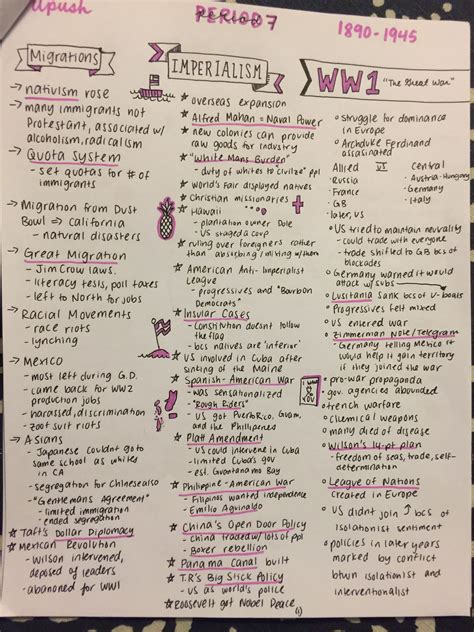 apush
PERIOD 7
1890-1945
Migrations
→ nativism rose
→ many immigrants not
Protestant, associated w/
alcoholism, radicalism
→ Quota System
- set quotas for # of
immigrants
→ Migration from Dust
Bowl ⇒ California
- natural disasters
→ Great Migration
- Jim Crow laws.
- literacy tests, poll taxes
- left to North for jobs
→ Racial Movements
- race riots
- lynching
→ Mexico
- most left during G.D.
- came back for WW2
production jobs
- harassed, discrimination
- zoot suit riots
→ Asians
- Japanese couldnt go to
same school as whites
in CA
- segregation for Chinese also
- "Gentlemans Agreement"
- limited immigration
- ended segregation
★ Taft's Dollar Diplomacy
★ Mexican Revolution
- Wilson intervened,
deposed of leaders
- abanoned for WW1
IMPERIALISM
★ overseas expansion
★ Alfred Mahan = Naval Power
★ new colonies can provide
raw goods for industry
★ "White Mans Burden"
- duty of whites to "civilize" ppl
★ world's Fair displayed natives
★ Christian missionaries
★ Hawaii
- plantation owner Dole
- US staged a coup
★ ruling over foreigners rather
than absorbing / mixing w/ them
★ American Anti-Imperialist
League
- progressives and "Bourbon
Democrats"
★ Insular Cases
- Constitution doesnt follow
the flag
- bcs natives are 'inferior'
★ US involved in Cuba after
sinking of the Maine
★ Spanish-American War
- was sensationalized
- "Rough Riders"
- US got Puerto Rico, Guam,
and the Phillipenes
★ Platt Amendment
- US could intervene in Cuba
- limited Cuba's gov
- est. Guantanamo Bay
★ Philippine-American War
- Filipinos wanted independence
- Emilio Aguinaldo
★ China's Open Door Policy
- China traded w/ lots of ppl
- Boxer rebellion
★ Panama Canal built
★ T.R's Big Stick Policy
- US as world's police
★ Roosevelt got Nobel Peace
WW1 "The Great War"
○ struggle for dominance
in Europe
○ Archduke Ferdinand
assasinated
Allied VS Central
- Russia
- France
- GB
- later, US
- Austria-Hungary
- Germany
- Italy
○ US tried to maintain neutrality
- could trade with everyone
- trade shifted to GB bcs of
blockades
○ Germany warned it would
attack w/ subs
○ Lusitania sank bcs of U-boats
○ Progressives felt mixed
○ US entered war
○ Zimmerman Note/Telegram
- Germany telling Mexico it
would help it gain territory
if they joined the war
I WANT YOU
○ pro-war propaganda
○ gov. agencies abounded
○ trench warfare
○ chemical weapons
○ many died of disease
○ Wilson's 14-pt plan
- freedom of seas, trade, self-
determination
○ League of Nations
created in Europe
○ US didnt join bcs of
isolationist sentiment
○ policies in later years
marked by conflict
btwn isolationist and
interventionalist